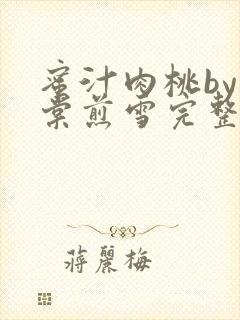 蜜汁肉桃by
棠煎雪完整
蔣麗梅